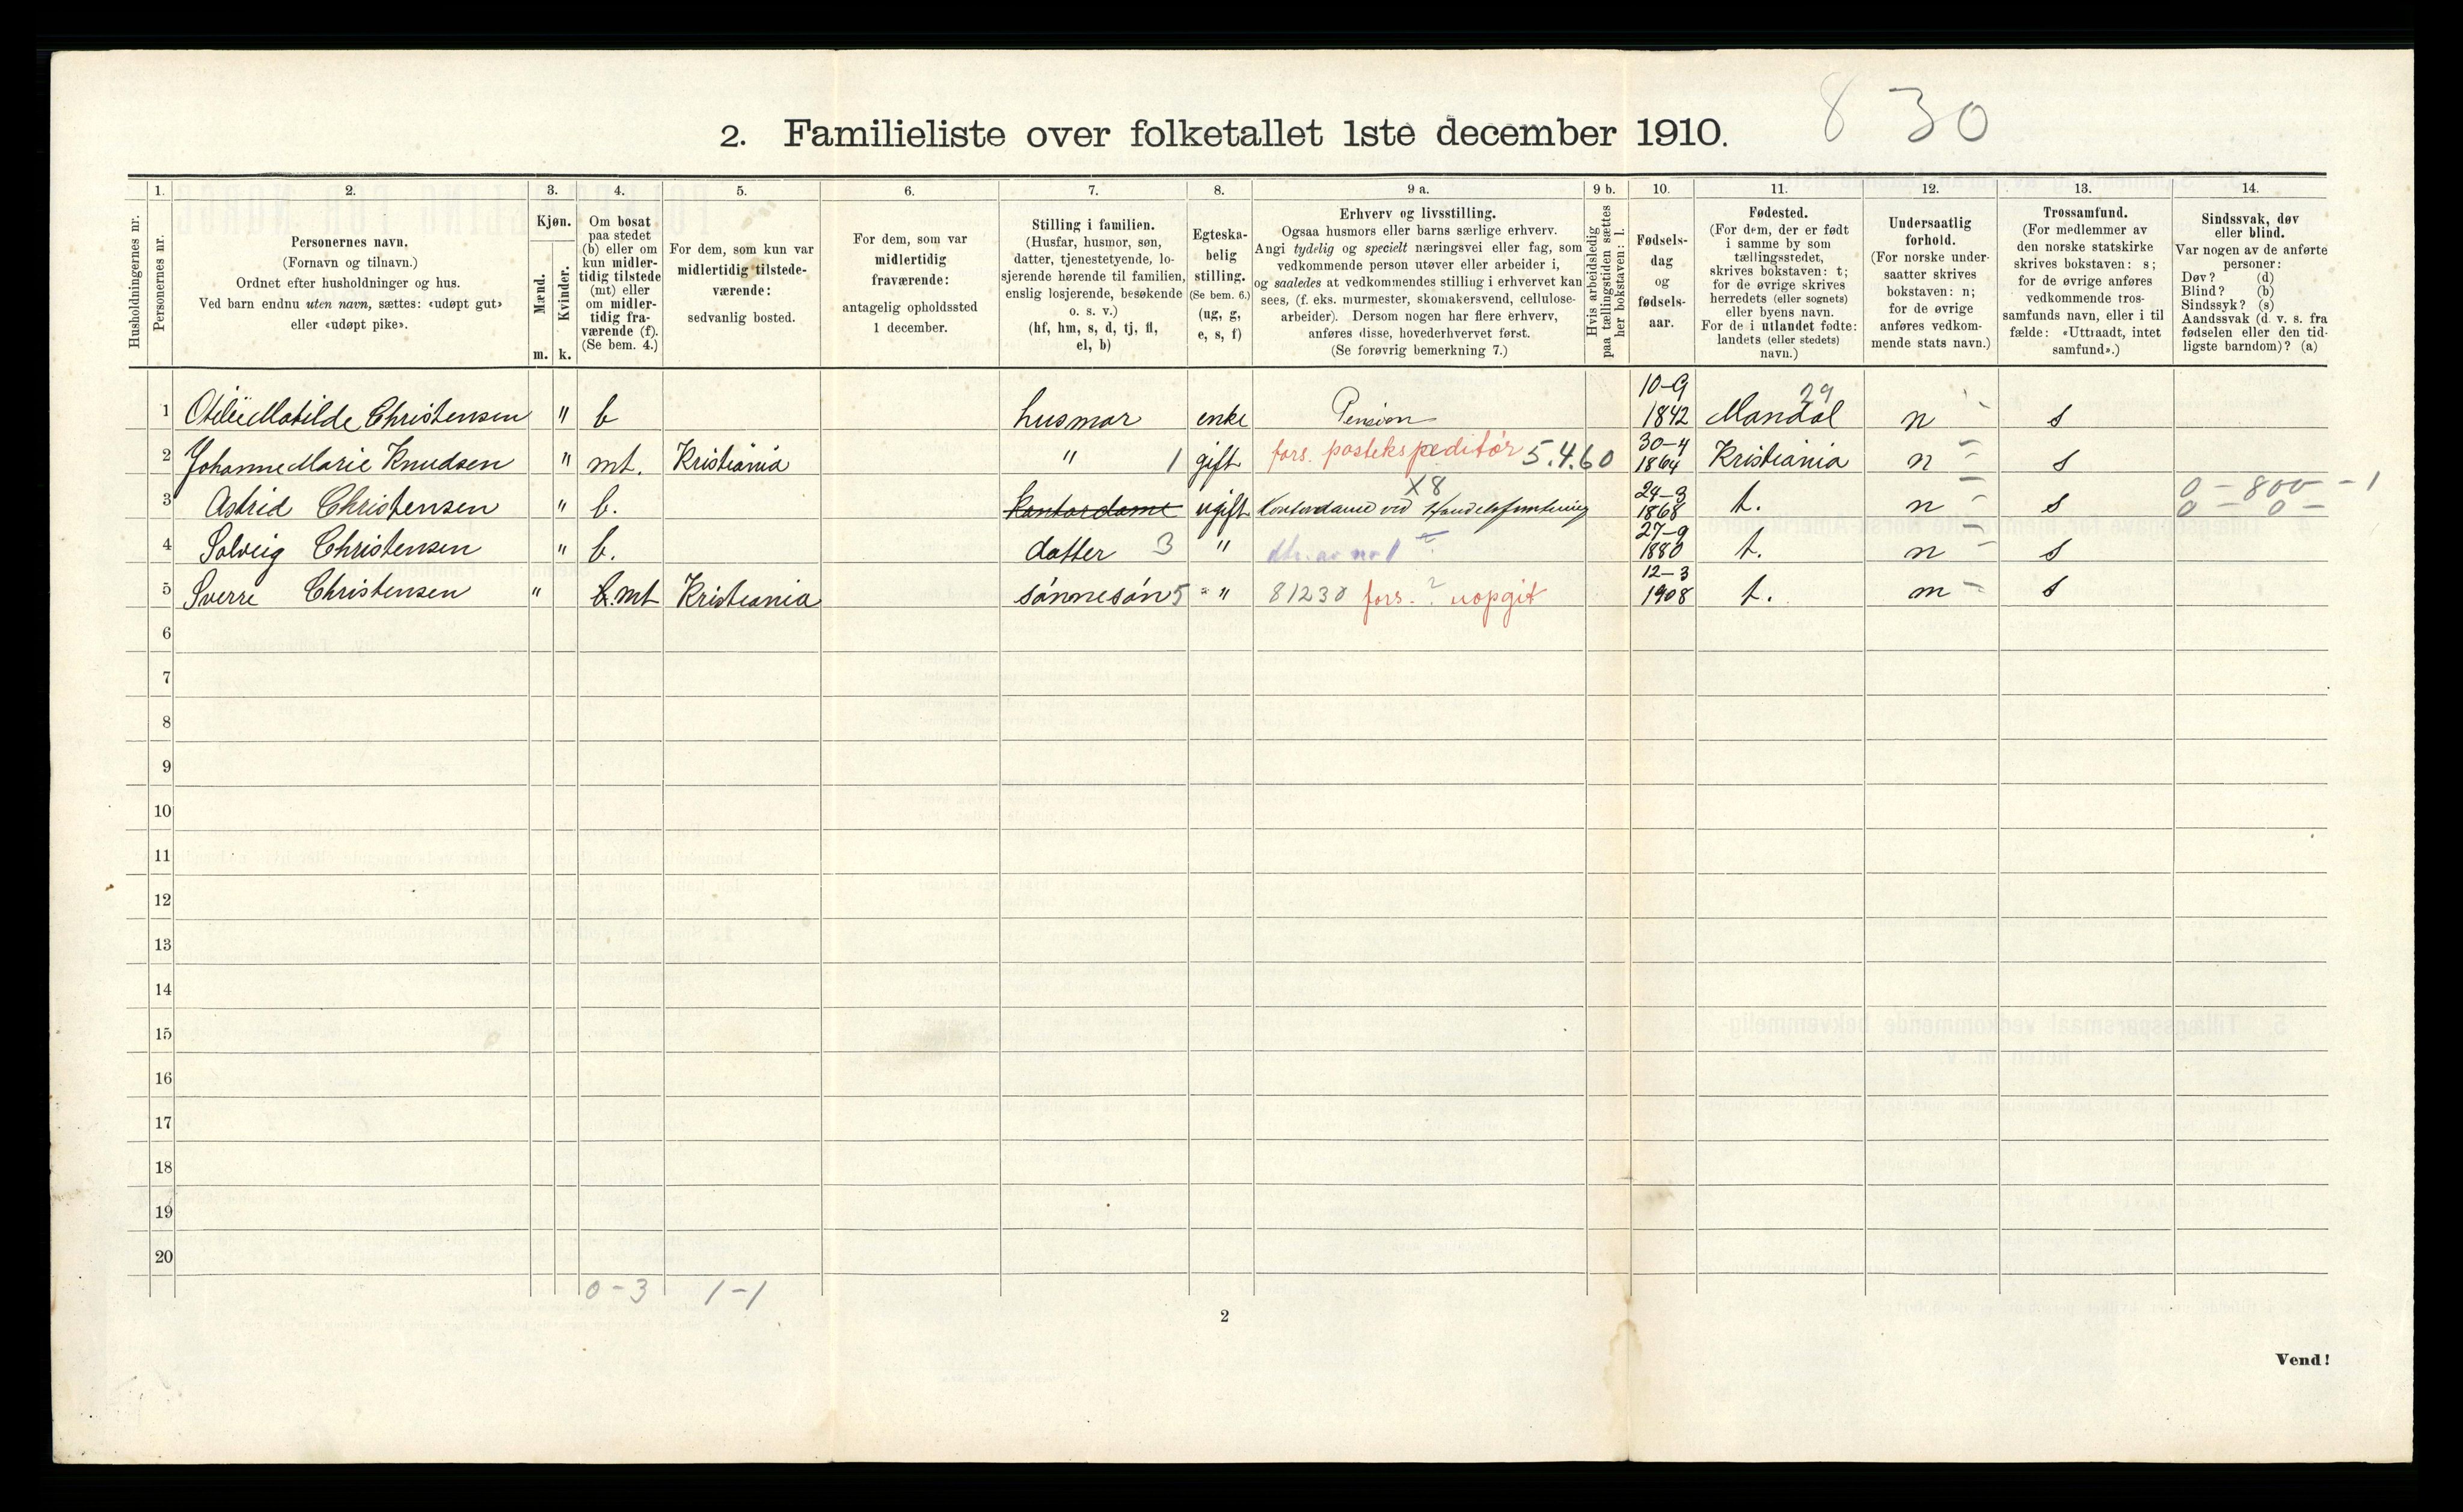 8 30
2. Familieliste over folketallet 1ste december 1910.
1. 2. 3. 4. 5. 6. 7. 8. 9 a. 9 b. 10. 11. 12. 13. 14.
Husholdningernes nr.
Personernes nr.
Personernes navn.
(Fornavn og tilnavn.)
Ordnet efter husholdninger og hus.
Ved barn endnu uten navn, sættes: «udøpt gut»
eller «udøpt pike».
Kjøn.
Mænd.
Kvinder.
m. k.
Om bosat
paa stedet
(b) eller om
kun midler-
tidig tilstede
(mt) eller
om midler-
tidig fra-
værende (f).
(Se bem. 4.)
For dem, som kun var
midlertidig tilstede-
værende:
sedvanlig bosted.
For dem, som var
midlertidig
fraværende:
antagelig opholdssted
1 december.
Stilling i familien.
(Husfar, husmor, søn,
datter, tjenestetyende, lo-
sjerende hørende til familien,
enslig losjerende, besøkende
o. s. v.)
(hf, hm, s, d, tj, fl,
el, b)
Egteska-
belig
stilling.
(Se bem. 6.)
(ug, g,
e, s, f)
Erhverv og livsstilling.
Ogsaa husmors eller barns særlige erhverv.
Angi tydelig og specielt næringsvei eller fag, som
vedkommende person utøver eller arbeider i,
og saaledes at vedkommendes stilling i erhvervet kan
sees, (f. eks. murmester, skomakersvend, cellulose-
arbeider). Dersom nogen har flere erhverv,
anføres disse, hovederhvervet først.
(Se forøvrig bemerkning 7.)
Hvis arbeidsledig
paa tællingstiden sættes
her bokstaven: l.
Fødsels-
dag
og
fødsels-
aar.
Fødested.
(For dem, der er født
i samme by som
tællingsstedet,
skrives bokstaven: t;
for de øvrige skrives
herredets (eller sognets)
eller byens navn.
For de i utlandet fødte:
landets (eller stedets)
navn.)
Undersaatlig
forhold.
(For norske under-
saatter skrives
bokstaven: n;
for de øvrige
anføres vedkom-
mende stats navn.)
Trossamfund.
(For medlemmer av
den norske statskirke
skrives bokstaven: s;
for de øvrige anføres
vedkommende tros-
samfunds navn, eller i til
fælde: «Uttraadt, intet
samfund».)
Sindssvak, døv
eller blind.
Var nogen av de anførte
personer:
Døv? (d)
Blind? (b)
Sindssyk? (s)
Aandssvak (d. v. s. fra
fødselen eller den tid-
ligste barndom)? (a)
1 Otilie Matilde Christensen " b husmor enke Pension 10-9 1842 Mandal 29 n s
2 Johanne Marie Knudsen " mt. Kristiania " 1 gift fors. postekspeditør 5.4.60 30-4 1864 Kristiania n s
3 Astrid Christensen " b. kontordame ugift Kontordame ved X8 24-3 1868 t. n s 0 - 800 - 1
0 - 0 -
4 Solveig Christensen " b. datter 3 " dtr. av nr 1 27-9 1880 t. n s
5 Sverre Christensen " b. mt Kristiania sønnesøn 5 " 81230 fors. ? uopgit 12-3 1908 t. n s
6
7
8
9
10
11
12
13
14
15
16
17
18
19
20
0-3 1-1
2
Vend!